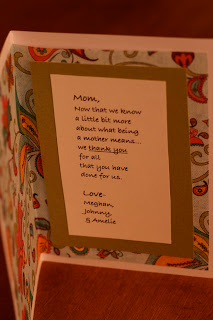 Mom,
Now that we know
a little bit more
about what being
a mother means...
we thank you
for all
that you have
done for us.
Love-
Meghan,
Johnny,
& Amelie